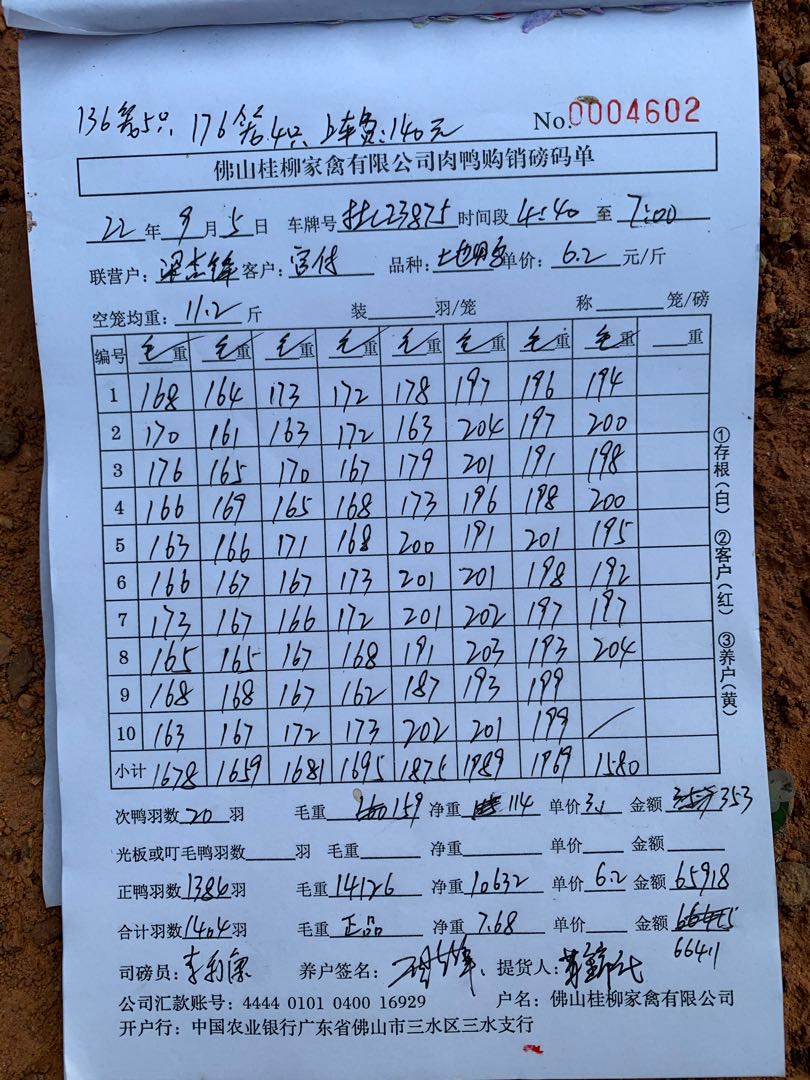 136笼5只 176笼4只 上车费:140元
No.0004602
佛山桂柳家禽有限公司肉鸭购销磅码单
22年9月5日 车牌号 23875 时间段 4:40 至 7:00
联营户: 客户: 品种: 单价: 6.2 元/斤
空笼均重: 11.2 斤 装 羽/笼 称 笼/磅
编号 毛重 毛重 毛重 毛重 毛重 毛重 毛重 毛重 重
1 168 164 173 172 178 197 196 194
2 170 161 163 172 163 204 197 200
3 176 165 170 167 179 201 191 198
4 166 169 165 168 173 196 198 200
5 163 166 171 168 200 191 201 195
6 166 167 167 173 201 201 198 192
7 173 167 166 172 201 202 197 197
8 165 165 167 168 191 203 193 204
9 168 168 167 162 187 193 199
10 163 167 172 173 202 201 199 /
小计 1678 1659 1681 1695 1875 1989 1969 1580
①存根(白) ②客户(红) ③养户(黄)
次鸭羽数 20 羽 毛重 159 净重 114 单价 3.1 金额 353
光板或叮毛鸭羽数 羽 毛重 净重 单价 金额
正鸭羽数 1384 羽 毛重 14126 净重 10632 单价 6.2 金额 65918
合计羽数 1404 羽 毛重 正品 净重 7.68 单价 金额
66411
司磅员: 养户签名: 提货人:
公司汇款账号: 4444 0101 0400 16929 户名: 佛山桂柳家禽有限公司
开户行: 中国农业银行广东省佛山市三水区三水支行